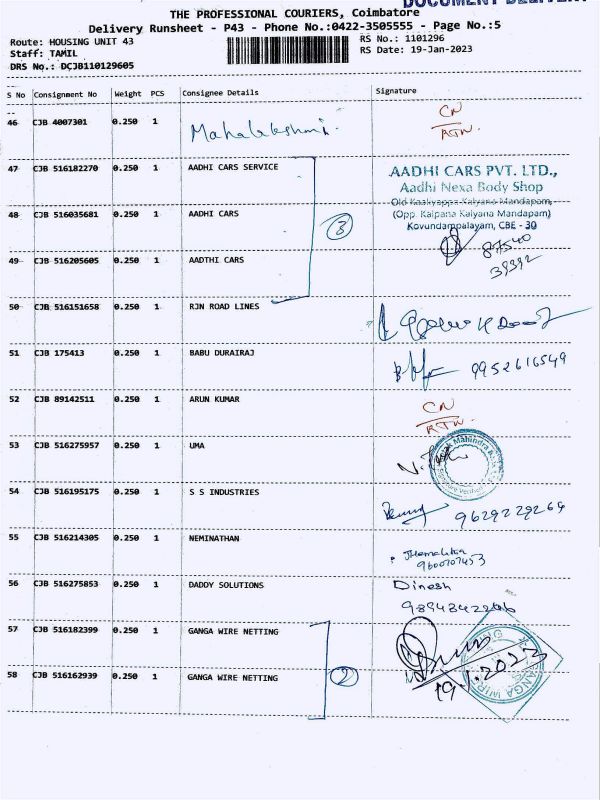 DOCUMENT DELIVERY
THE PROFESSIONAL COURIERS, Coimbatore
Delivery Runsheet - P43 - Phone No.:0422-3505555 - Page No.:5
Route: HOUSING UNIT 43 RS No.: 1101296
Staff: TAMIL RS Date: 19-Jan-2023
DRS No.: DCJB110129605
S No Consignment No Weight PCS Consignee Details Signature
46 CJB 4007301 0.250 1 Mahalakshmi CN
RTN.
47 CJB 516182270 0.250 1 AADHI CARS SERVICE AADHI CARS PVT. LTD.,
Aadhi Nexa Body Shop
Old Kaakyappa Kalyana Mandapam,
48 CJB 516035681 0.250 1 AADHI CARS (Opp. Kalpana Kalyana Mandapam)
3 Kovundampalayam, CBE - 30
87540
49 CJB 516205605 0.250 1 AADTHI CARS 39392
50 CJB 516151658 0.250 1 RJN ROAD LINES
51 CJB 175413 0.250 1 BABU DURAIRAJ 9952616549
52 CJB 89142511 0.250 1 ARUN KUMAR CN
RTN.
53 CJB 516275957 0.250 1 UMA Mahindra
54 CJB 516195175 0.250 1 S S INDUSTRIES 9629229269
55 CJB 516214305 0.250 1 NEMINATHAN
9600707453
56 CJB 516275853 0.250 1 DADDY SOLUTIONS Dinesh
57 CJB 516182399 0.250 1 GANGA WIRE NETTING
58 CJB 516162939 0.250 1 GANGA WIRE NETTING 2 19.1.2023
GANGA WIRE